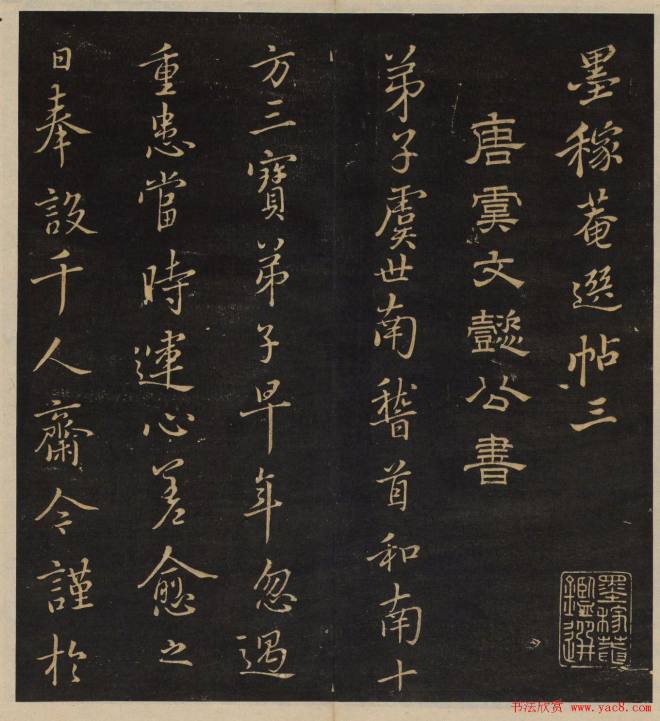 墨稼菴選帖三
唐虞文懿公書
弟子虞世南稽首和南十
方三寶弟子早年忽遇
重患當時運心差愈之
日奉設千人齋今謹於
墨稼菴鑑選
书法欣赏 www.yac8.com